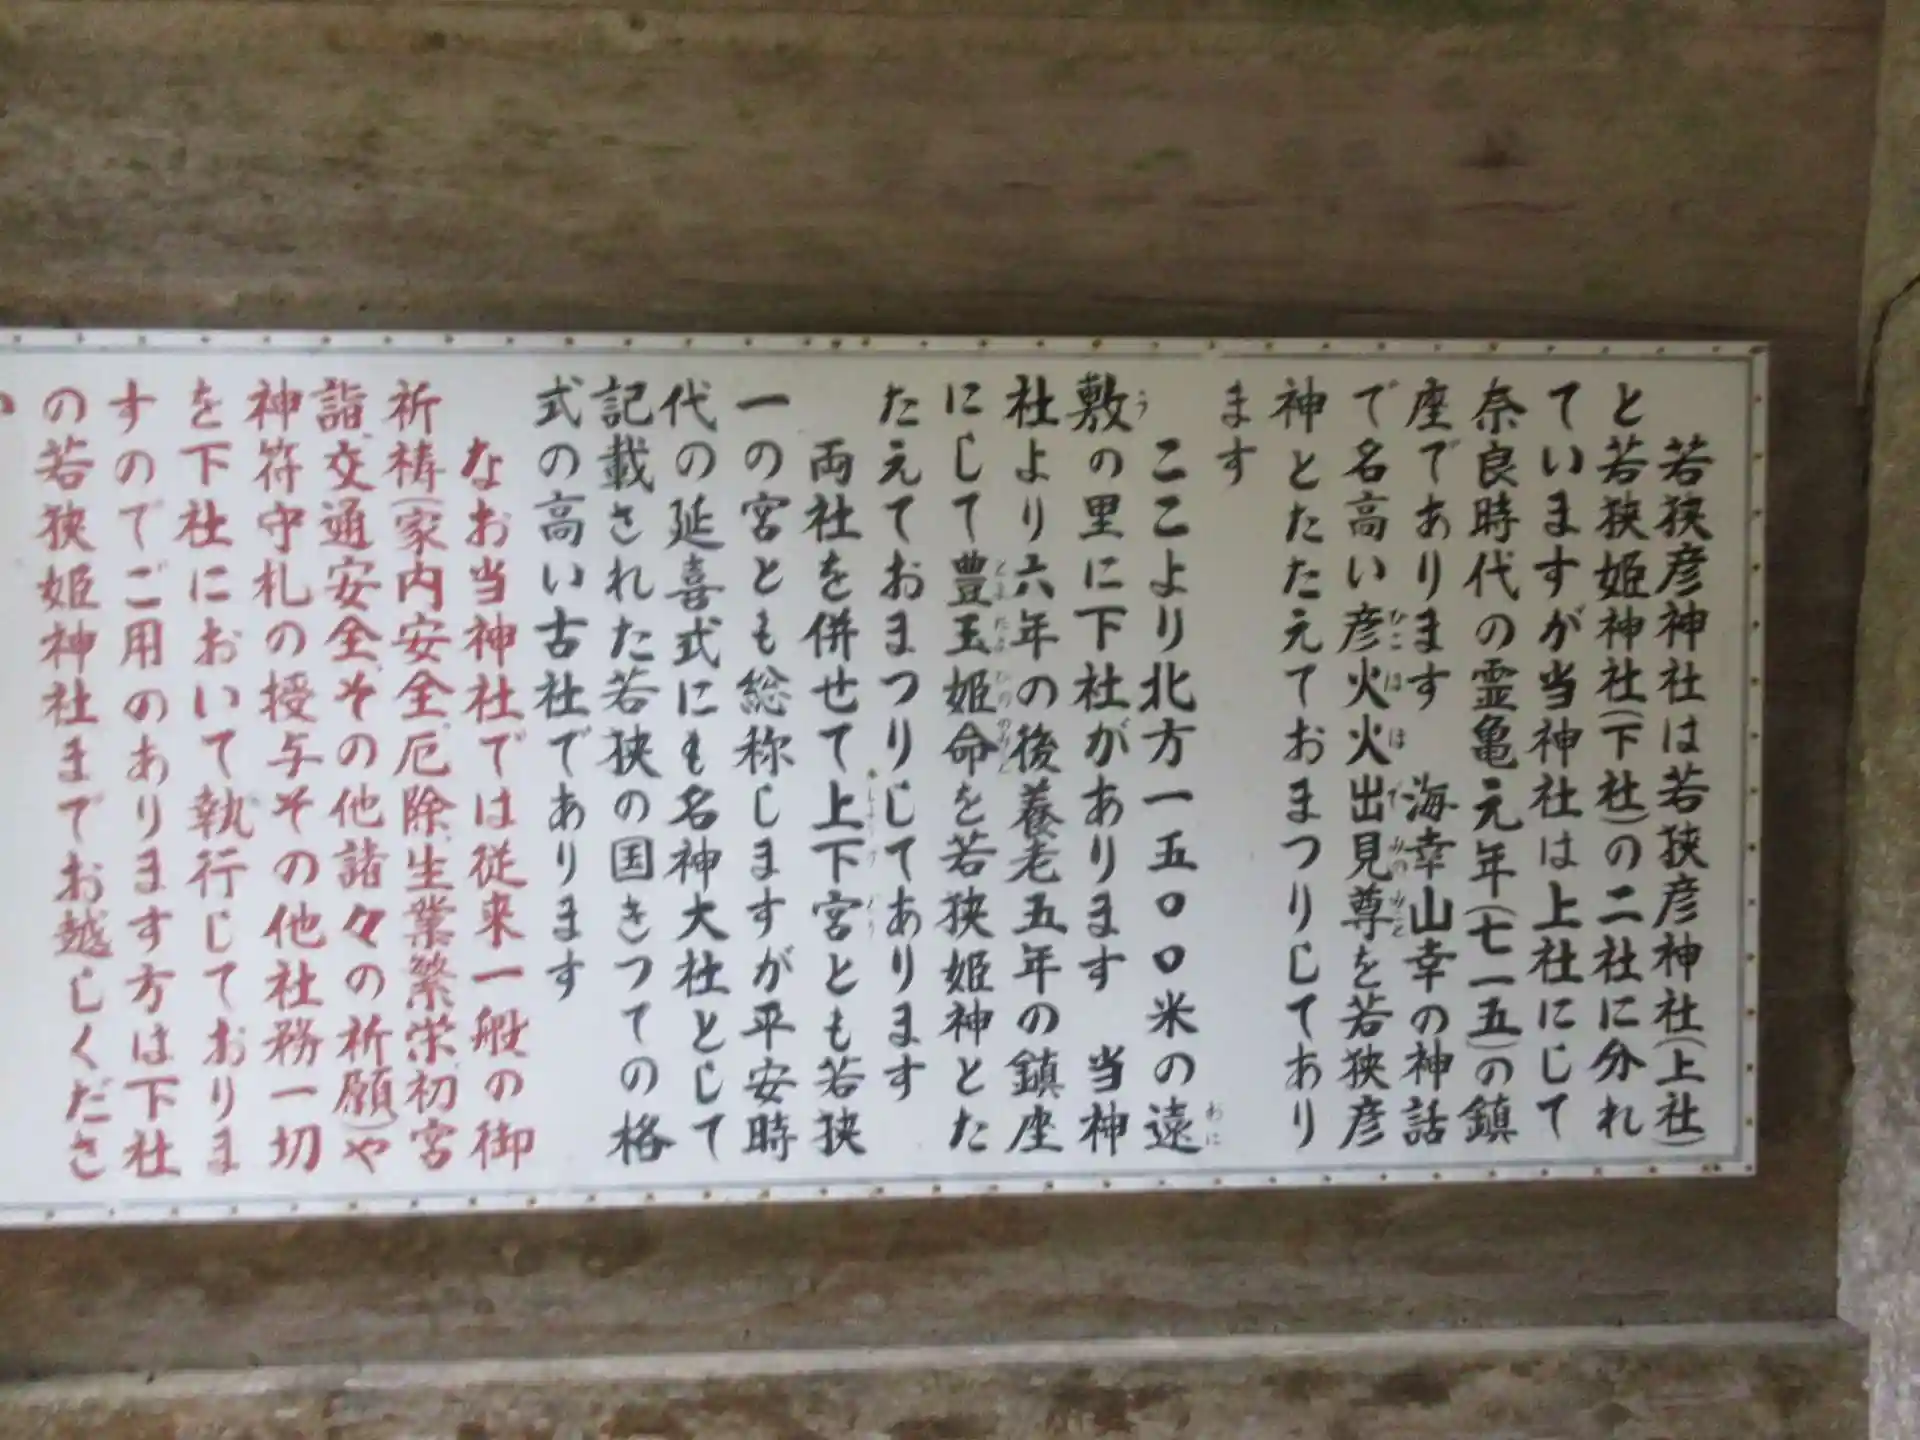 若狭彦神社は若狭彦神社(上社)
と若狭姫神社(下社)の二社に分れ
ていますが当神社は上社にして
奈良時代の霊亀元年(七一五)の鎮
座であります 海幸山幸の神話
で名高い彦火火出見尊を若狭彦
神とたたえておまつりしてあり
ます
ここより北方一五〇〇米の遠
敷の里に下社があります 当神
社より六年の後養老五年の鎮座
にして豊玉姫命を若狭姫神とた
たえておまつりしてあります
両社を併せて上下宮とも若狭
一の宮とも総称しますが平安時
代の延喜式にも名神大社として
記載された若狭の国きっての格
式の高い古社であります
なお当神社では従来一般の御
祈祷(家内安全、厄除、生業繁栄、初宮
詣、交通安全、その他諸々の祈願)や
神符守札の授与その他社務一切
を下社において執行しておりま
すのでご用のあります方は下社
の若狭姫神社までお越しくださ
い